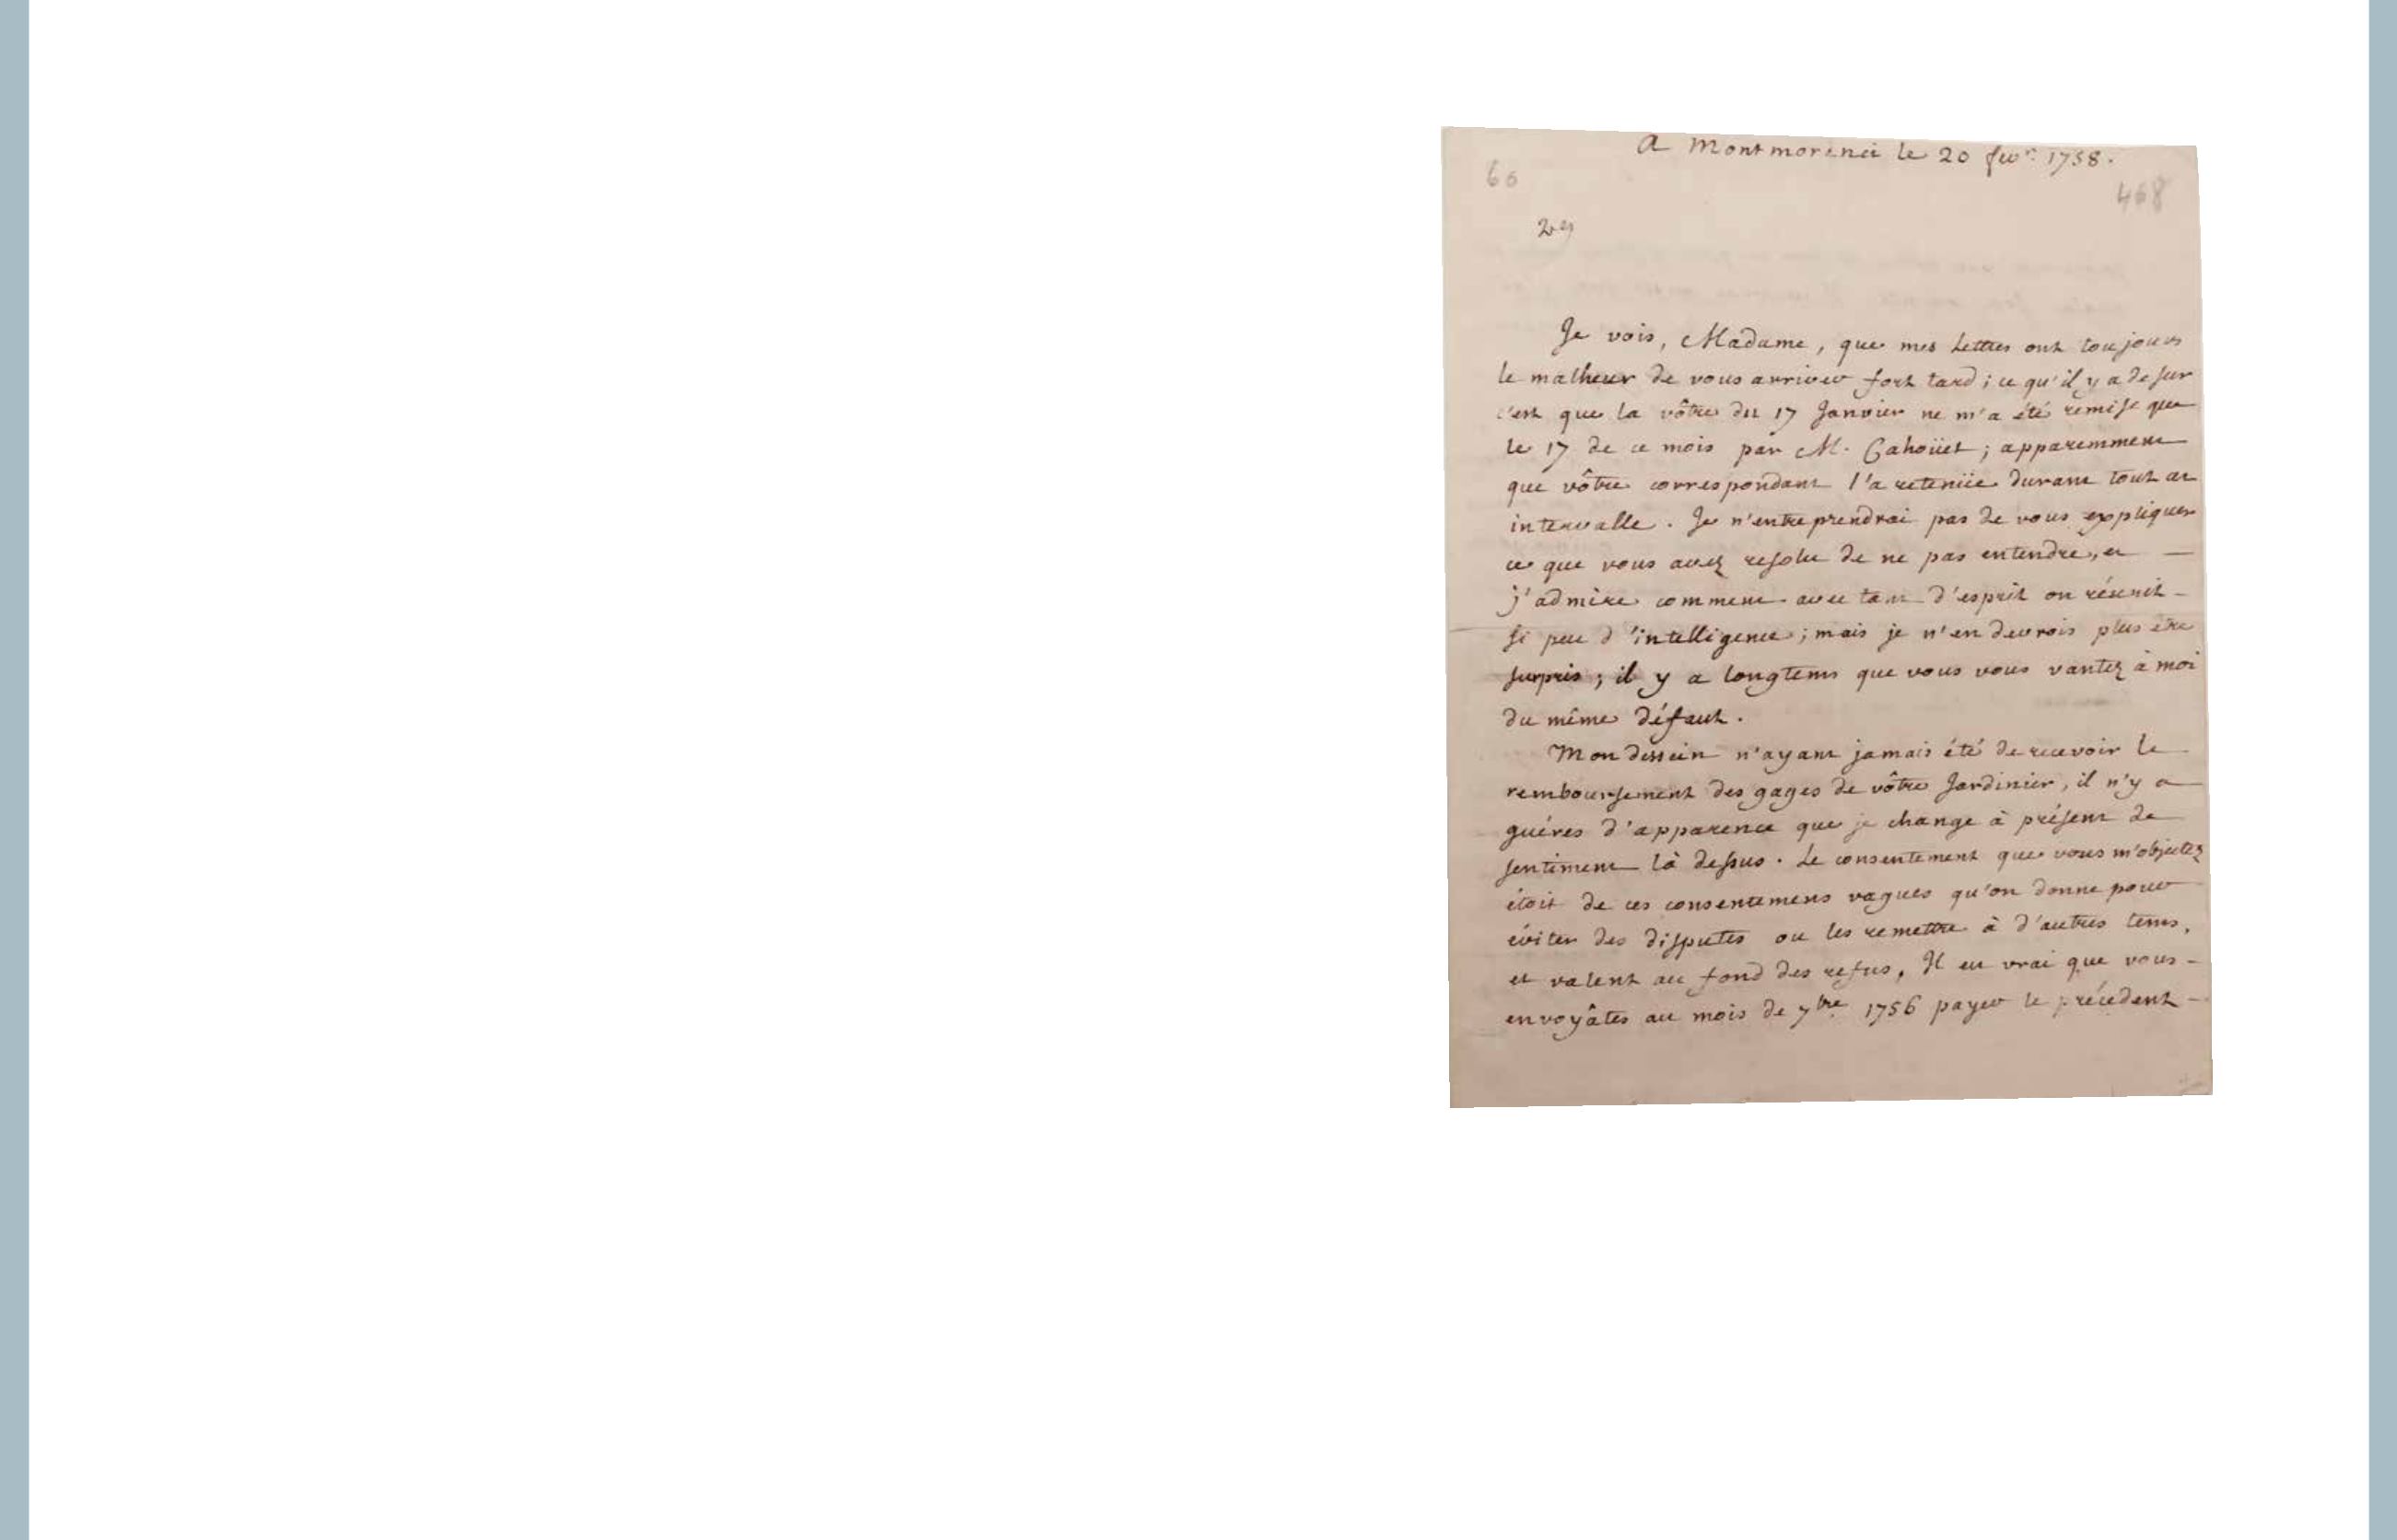 A Montmorenci le 20 fevr. 1758.
60
468
Je vois, Madame, que mes Lettres ont toujours
le malheur de vous arriver fort tard ; ce qu'il y a de sur
c'est que la vôtre du 17 Janvier ne m'a été remise que
le 17 de ce mois par M. Cahoüet ; apparemment
que vôtre correspondant l'a retenüe durant tout cet
intervalle. Je n'entreprendrai pas de vous expliquer
ce que vous avez resolu de ne pas entendre, et
j'admire comment avec tant d'esprit on réunit
si peu d'intelligence ; mais je n'en devrois plus être
surpris ; il y a longtems que vous vous vantez à moi
du même défaut.
Mon dessein n'ayant jamais été de recevoir le
remboursement des gages de vôtre Jardinier, il n'y a
guéres d'apparence que je change à présent de
sentiment là dessus. Le consentement que vous m'objectez
étoit de ces consentemens vagues qu'on donne pour
éviter des disputes ou les remettre à d'autres tems,
et valent au fond des refus, Il est vrai que vous
envoyâtes au mois de 7bre 1756 payer le précédent